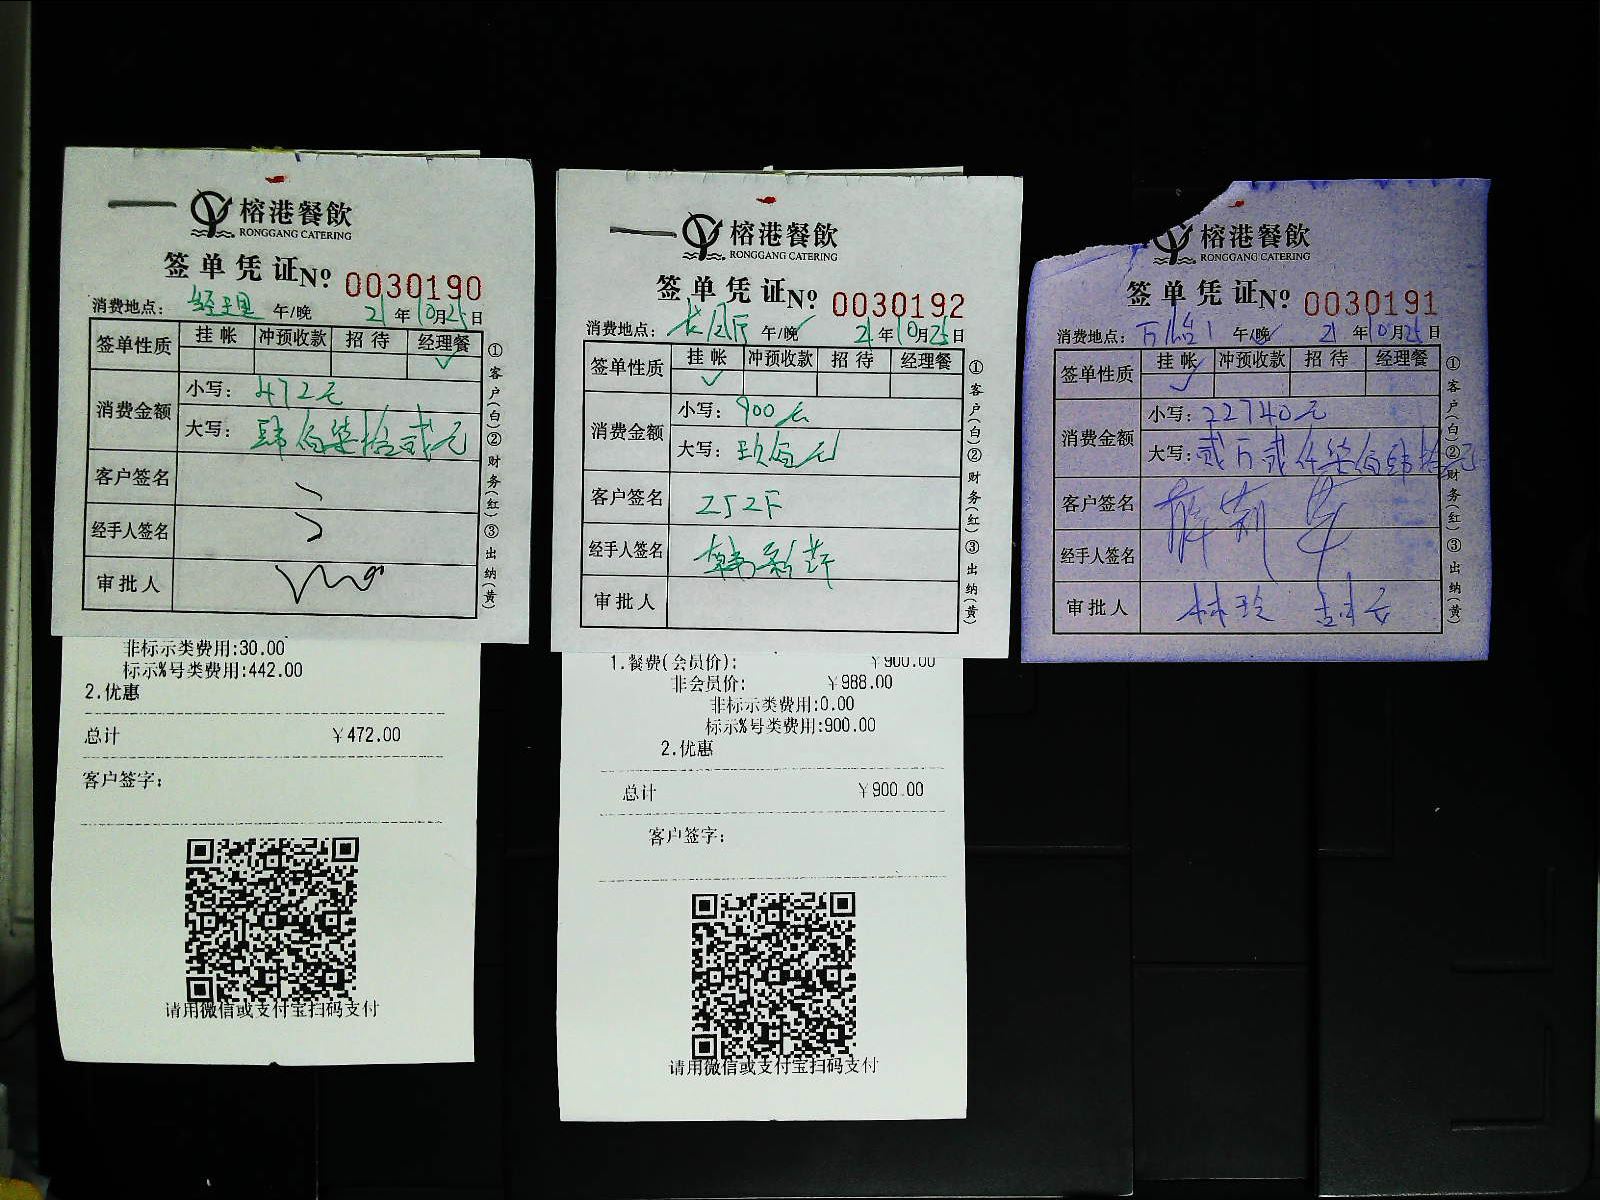 榕港餐飲
RONGGANG CATERING
签单凭证 No 0030190
消费地点：经理 午/晚 21年10月25日
签单性质 挂帐 冲预收款 招待 经理餐 ✓
消费金额 小写：472元
大写：肆佰柒拾贰元
客户签名
经手人签名
审批人
①客户(白)②财务(红)③出纳(黄)
非标示类费用:30.00
标示%号类费用:442.00
2.优惠
总计 ￥472.00
客户签字：
请用微信或支付宝扫码支付
榕港餐飲
RONGGANG CATERING
签单凭证 No 0030192
消费地点： 午/晚 ✓ 21年10月25日
签单性质 挂帐 ✓ 冲预收款 招待 经理餐
消费金额 小写：900元
大写：玖佰元
客户签名 252F
经手人签名
审批人
①客户(白)②财务(红)③出纳(黄)
1.餐费(会员价): ￥900.00
非会员价: ￥988.00
非标示类费用:0.00
标示%号类费用:900.00
2.优惠
总计 ￥900.00
客户签字：
请用微信或支付宝扫码支付
榕港餐飲
RONGGANG CATERING
签单凭证 No 0030191
消费地点：万怡1 午/晚 ✓ 21年10月25日
签单性质 挂帐 ✓ 冲预收款 招待 经理餐
消费金额 小写：22740元
大写：贰万贰仟柒佰肆拾元
客户签名
经手人签名
审批人 林玲
①客户(白)②财务(红)③出纳(黄)